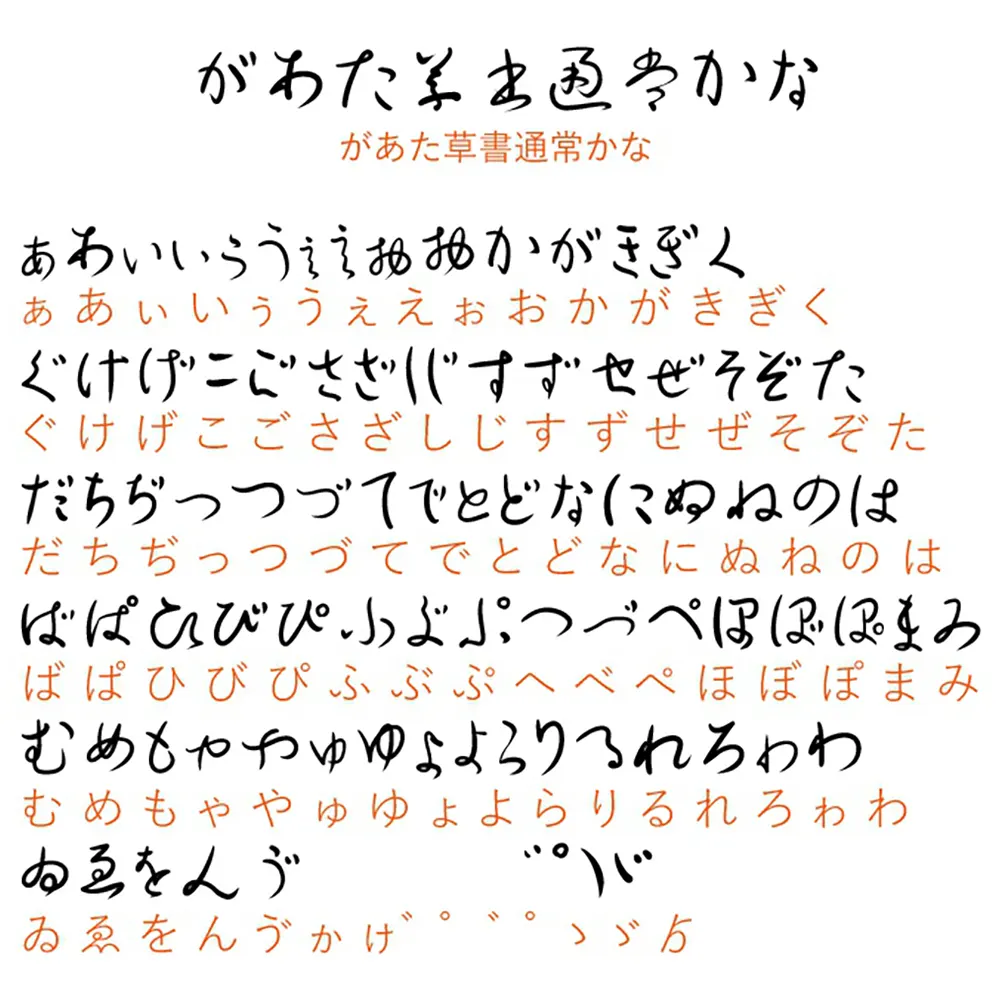 があた草書通常かな
があた草書通常かな
ぁあぃいぅうぇえぉおかがきぎく
ぁあぃいぅうぇえぉおかがきぎく
ぐけげこごさざしじすずせぜそぞた
ぐけげこごさざしじすずせぜそぞた
だちぢっつづてでとどなにぬねのは
だちぢっつづてでとどなにぬねのは
ばぱひびぴふぶぷへべぺほぼぽまみ
ばぱひびぴふぶぷへべぺほぼぽまみ
むめもゃやゅゆょよらりるれろゎわ
むめもゃやゅゆょよらりるれろゎわ
ゐゑをんゔ ゛゜ゝゞ
ゐゑをんゔゕゖ゛゜゛゜ゝゞゟ